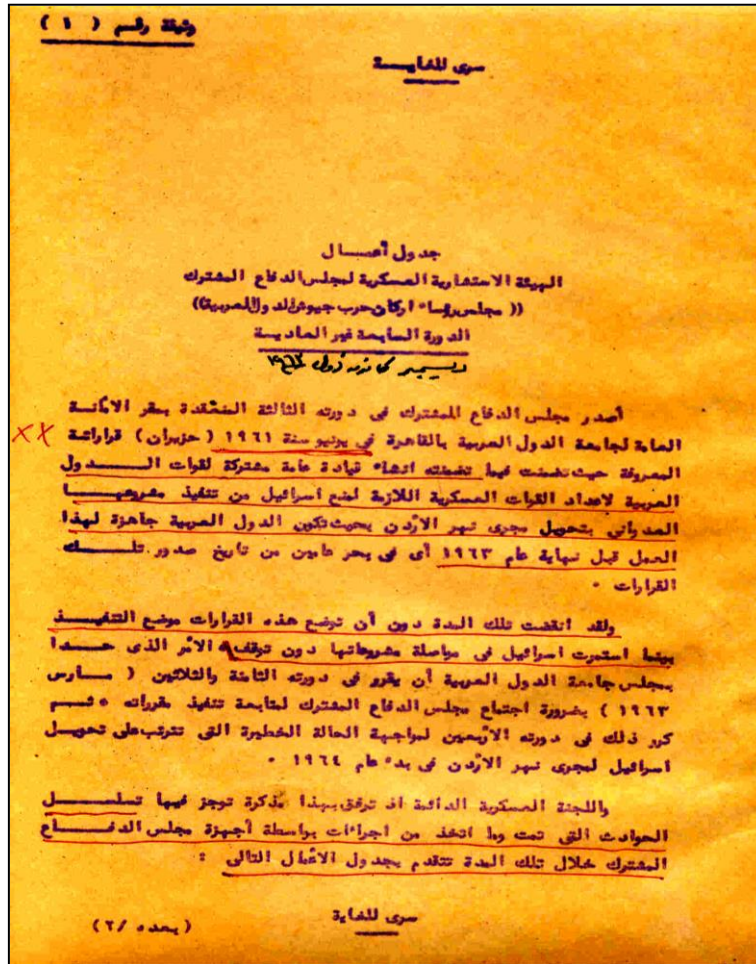 وثيقة رقم ( ١ )
سرى للغايـــة
جدول أعمـــال
الهيئة الاستشارية العسكرية لمجلس الدفاع المشترك
(( مجلس رؤساء اركان حرب جيوش الدول العربية ))
الدورة السابعة غير العاديـة
ديسمبر كانون أول ١٩٦٣
أصدر مجلس الدفاع المشترك فى دورته الثالثة المنعقدة بمقر الأمانـة
العامة لجامعة الدول العربية بالقاهرة فى يونيو سنة ١٩٦١ ( حزيران ) قراراتـه
المعروفة حيث تضمنت فيما تضمنته انشاء قيادة عامة مشتركة لقوات الـــدول
العربية لاعداد القوات العسكرية اللازمة لمنع اسرائيل من تنفيذ مشروعهـــا
العدوانى بتحويل مجرى نهر الأردن بحيث تكون الدول العربية جاهزة لهذا
العمل قبل نهاية عام ١٩٦٣ أى فى بحر عامين من تاريخ صدور تلـــك
القرارات ٠
ولقد انقضت تلك المدة دون أن توضع هذه القرارات موضع التنفيـــذ
بينما استمرت اسرائيل فى مواصلة مشروعاتها دون توقف الأمر الذى حـــدا
بمجلس جامعة الدول العربية أن يقرر فى دورته الثامنة والثلاثين ( مـــارس
١٩٦٣ ) بضرورة اجتماع مجلس الدفاع المشترك لمتابعة تنفيذ مقرراته ، ثـــم
كرر ذلك فى دورته الأربعين لمواجهة الحالة الخطيرة التى تترتب على تحويـل
اسرائيل لمجرى نهر الأردن فى بدء عام ١٩٦٤ ٠
واللجنة العسكرية الدائمة اذ ترفق بهذا مذكرة توجز فيها تسلســـل
الحوادث التى تمت وما اتخذ من اجراءات بواسطة أجهزة مجلس الدفـــاع
المشترك خلال تلك المدة تتقدم بجدول الأعمال التالى :
سرى للغاية
( بعده /٢ )